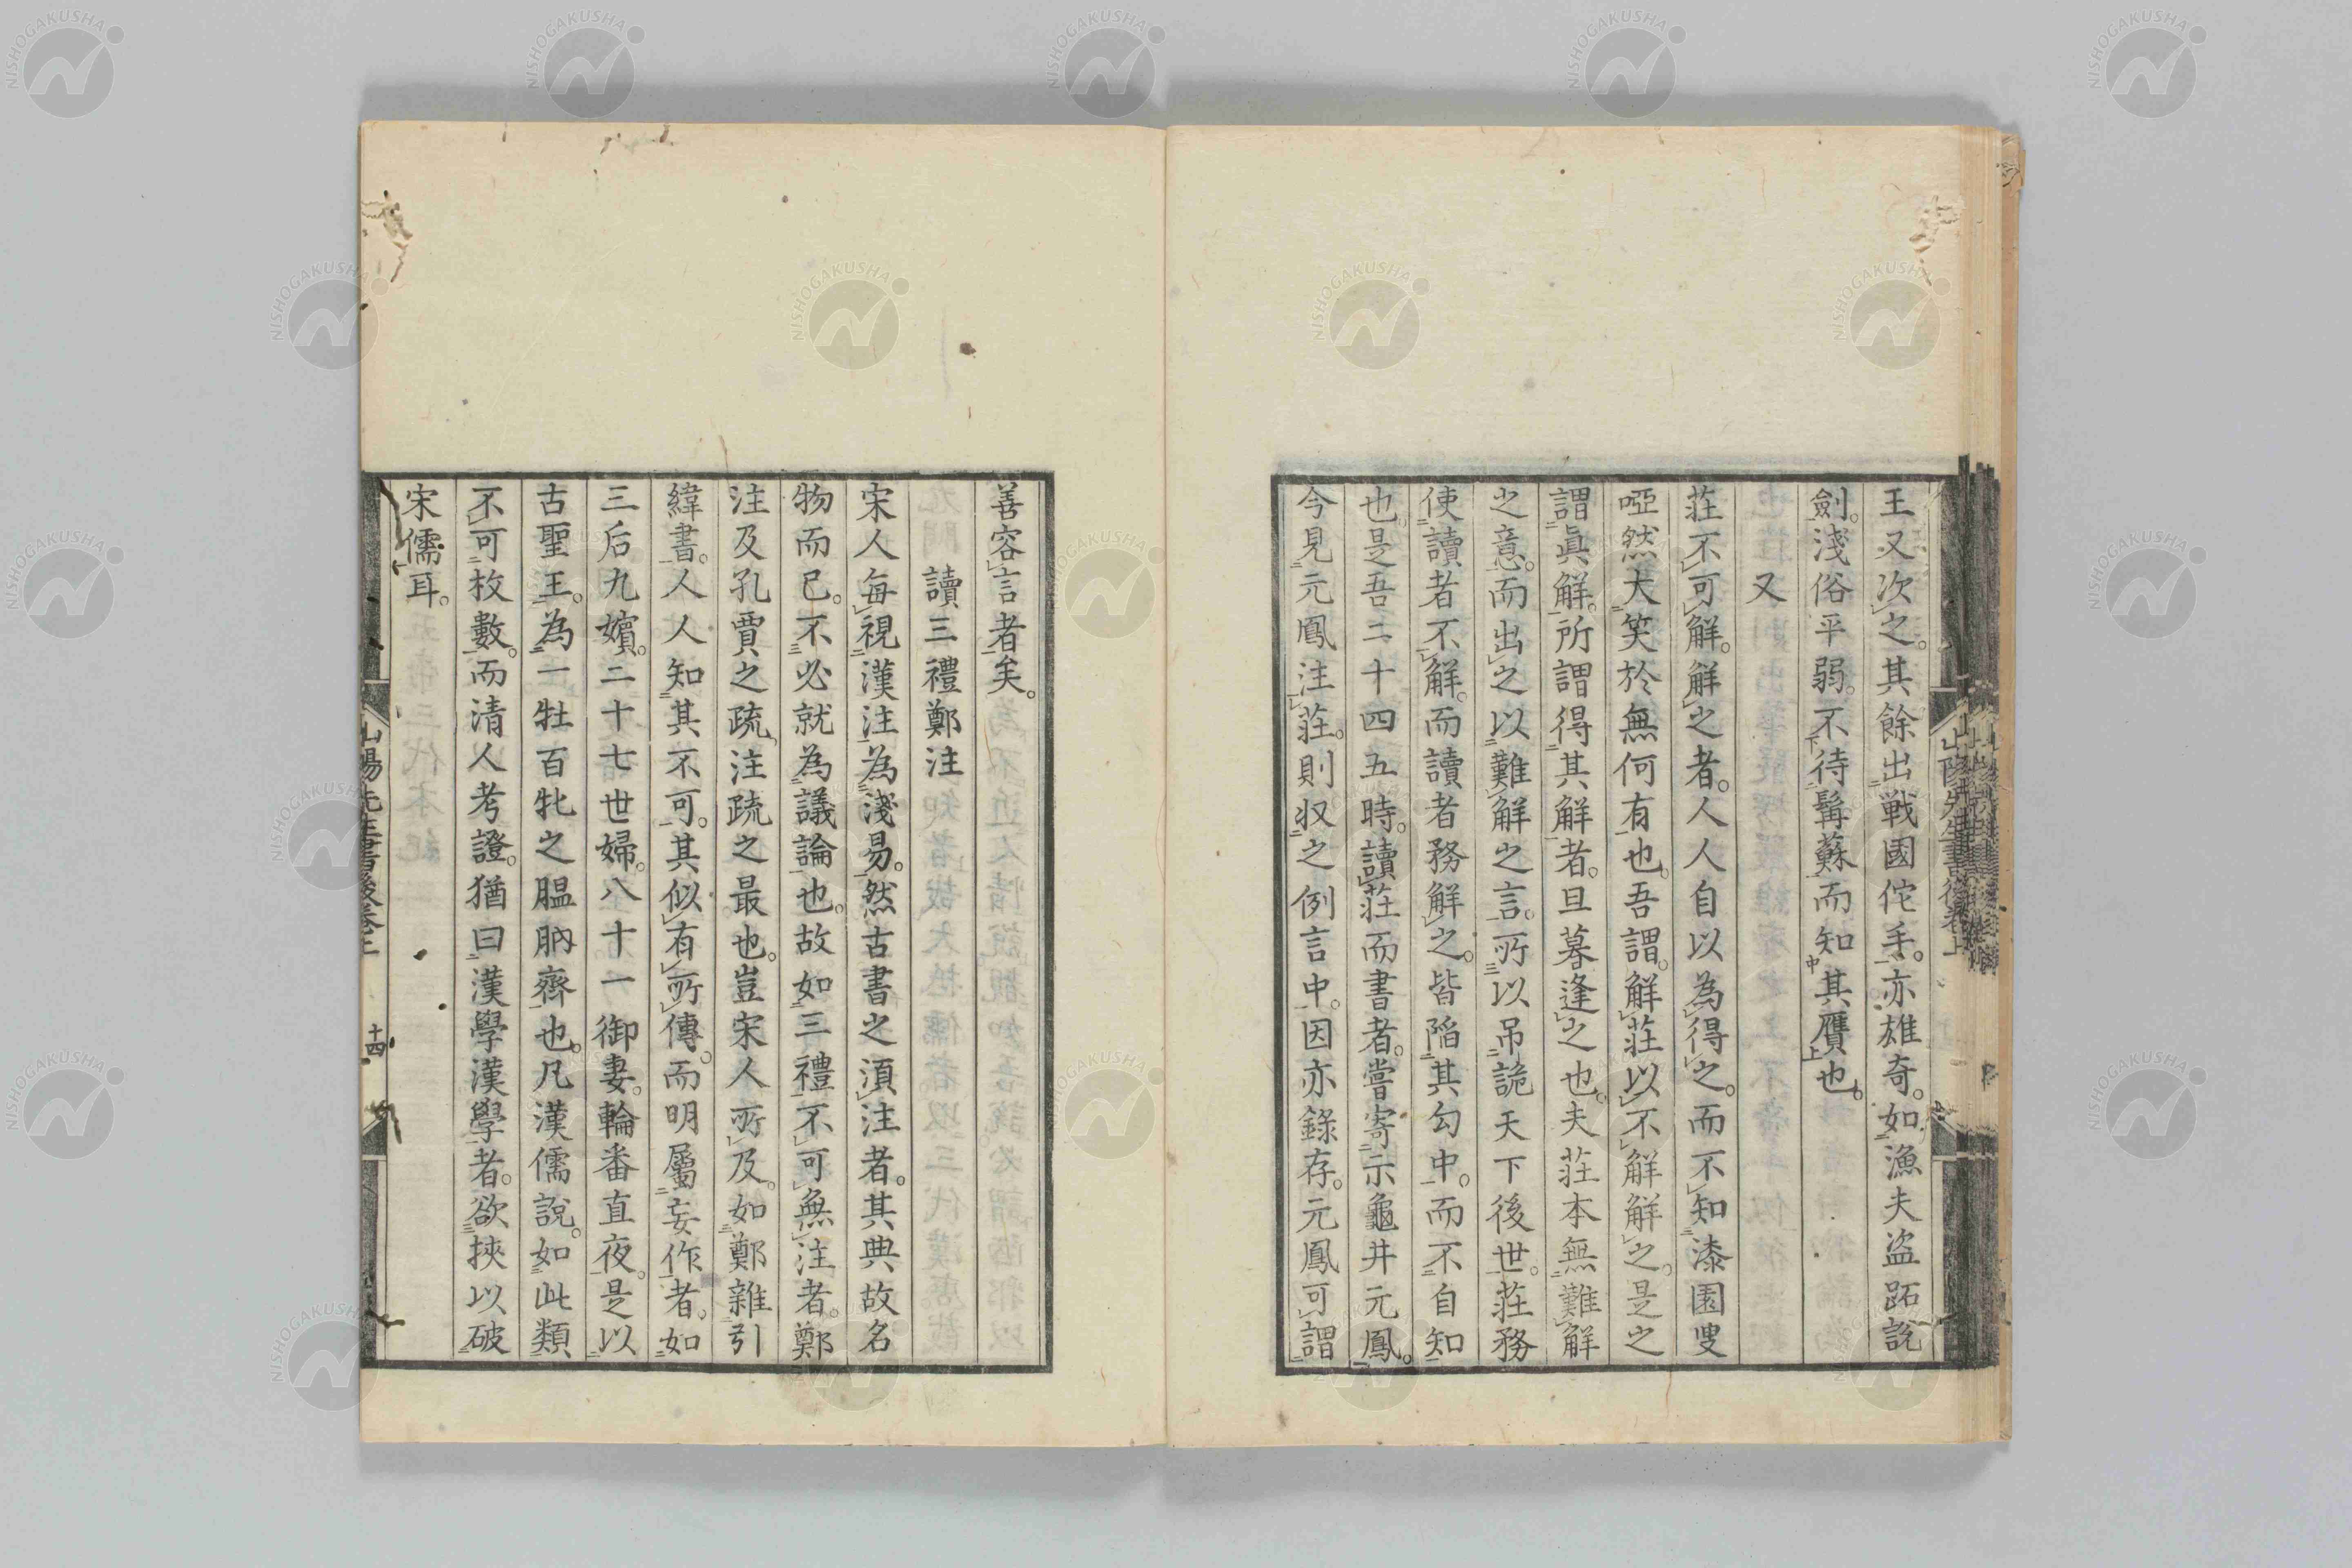 王又次之。其餘出戰國佗手。亦雄奇。如漁夫盜跖說
劍。淺俗平弱。不待髯蘇而知其贋也。
又
莊不可解。解之者。人人自以為得之。而不知漆園叟
啞然大笑於無何有也。吾謂。解莊以不解解之。是之
謂眞解。所謂得其解者。旦暮逢之也。夫莊本無難解
之意。而出之以難解之言。所以吊詭天下後世。莊務
使讀者不解。而讀者務解之。皆陷其勾中。而不自知
也。是吾二十四五時。讀莊而書者。嘗寄示龜井元鳳。
今見元鳳注莊。則収之例言中。因亦錄存。元鳳可謂
善容言者矣。
讀三禮鄭注
宋人每視漢注為淺易。然古書之須注者。其典故名
物而已。不必就為議論也。故如三禮不可無注者。鄭
注及孔賈之疏。注疏之最也。豈宋人所及。如鄭雜引
緯書。人人知其不可。其似有所傳。而明屬妄作者。如
三后九嬪。二十七世婦。八十一御妻。輪番直夜。是以
古聖王。為一牡百牝之膃肭齊也。凡漢儒說。如此類
不可枚數。而清人考證。猶曰漢學漢學者。欲挾以破
宋儒耳。
山陽先生書後卷上
十四
NISHOGAKUSHA